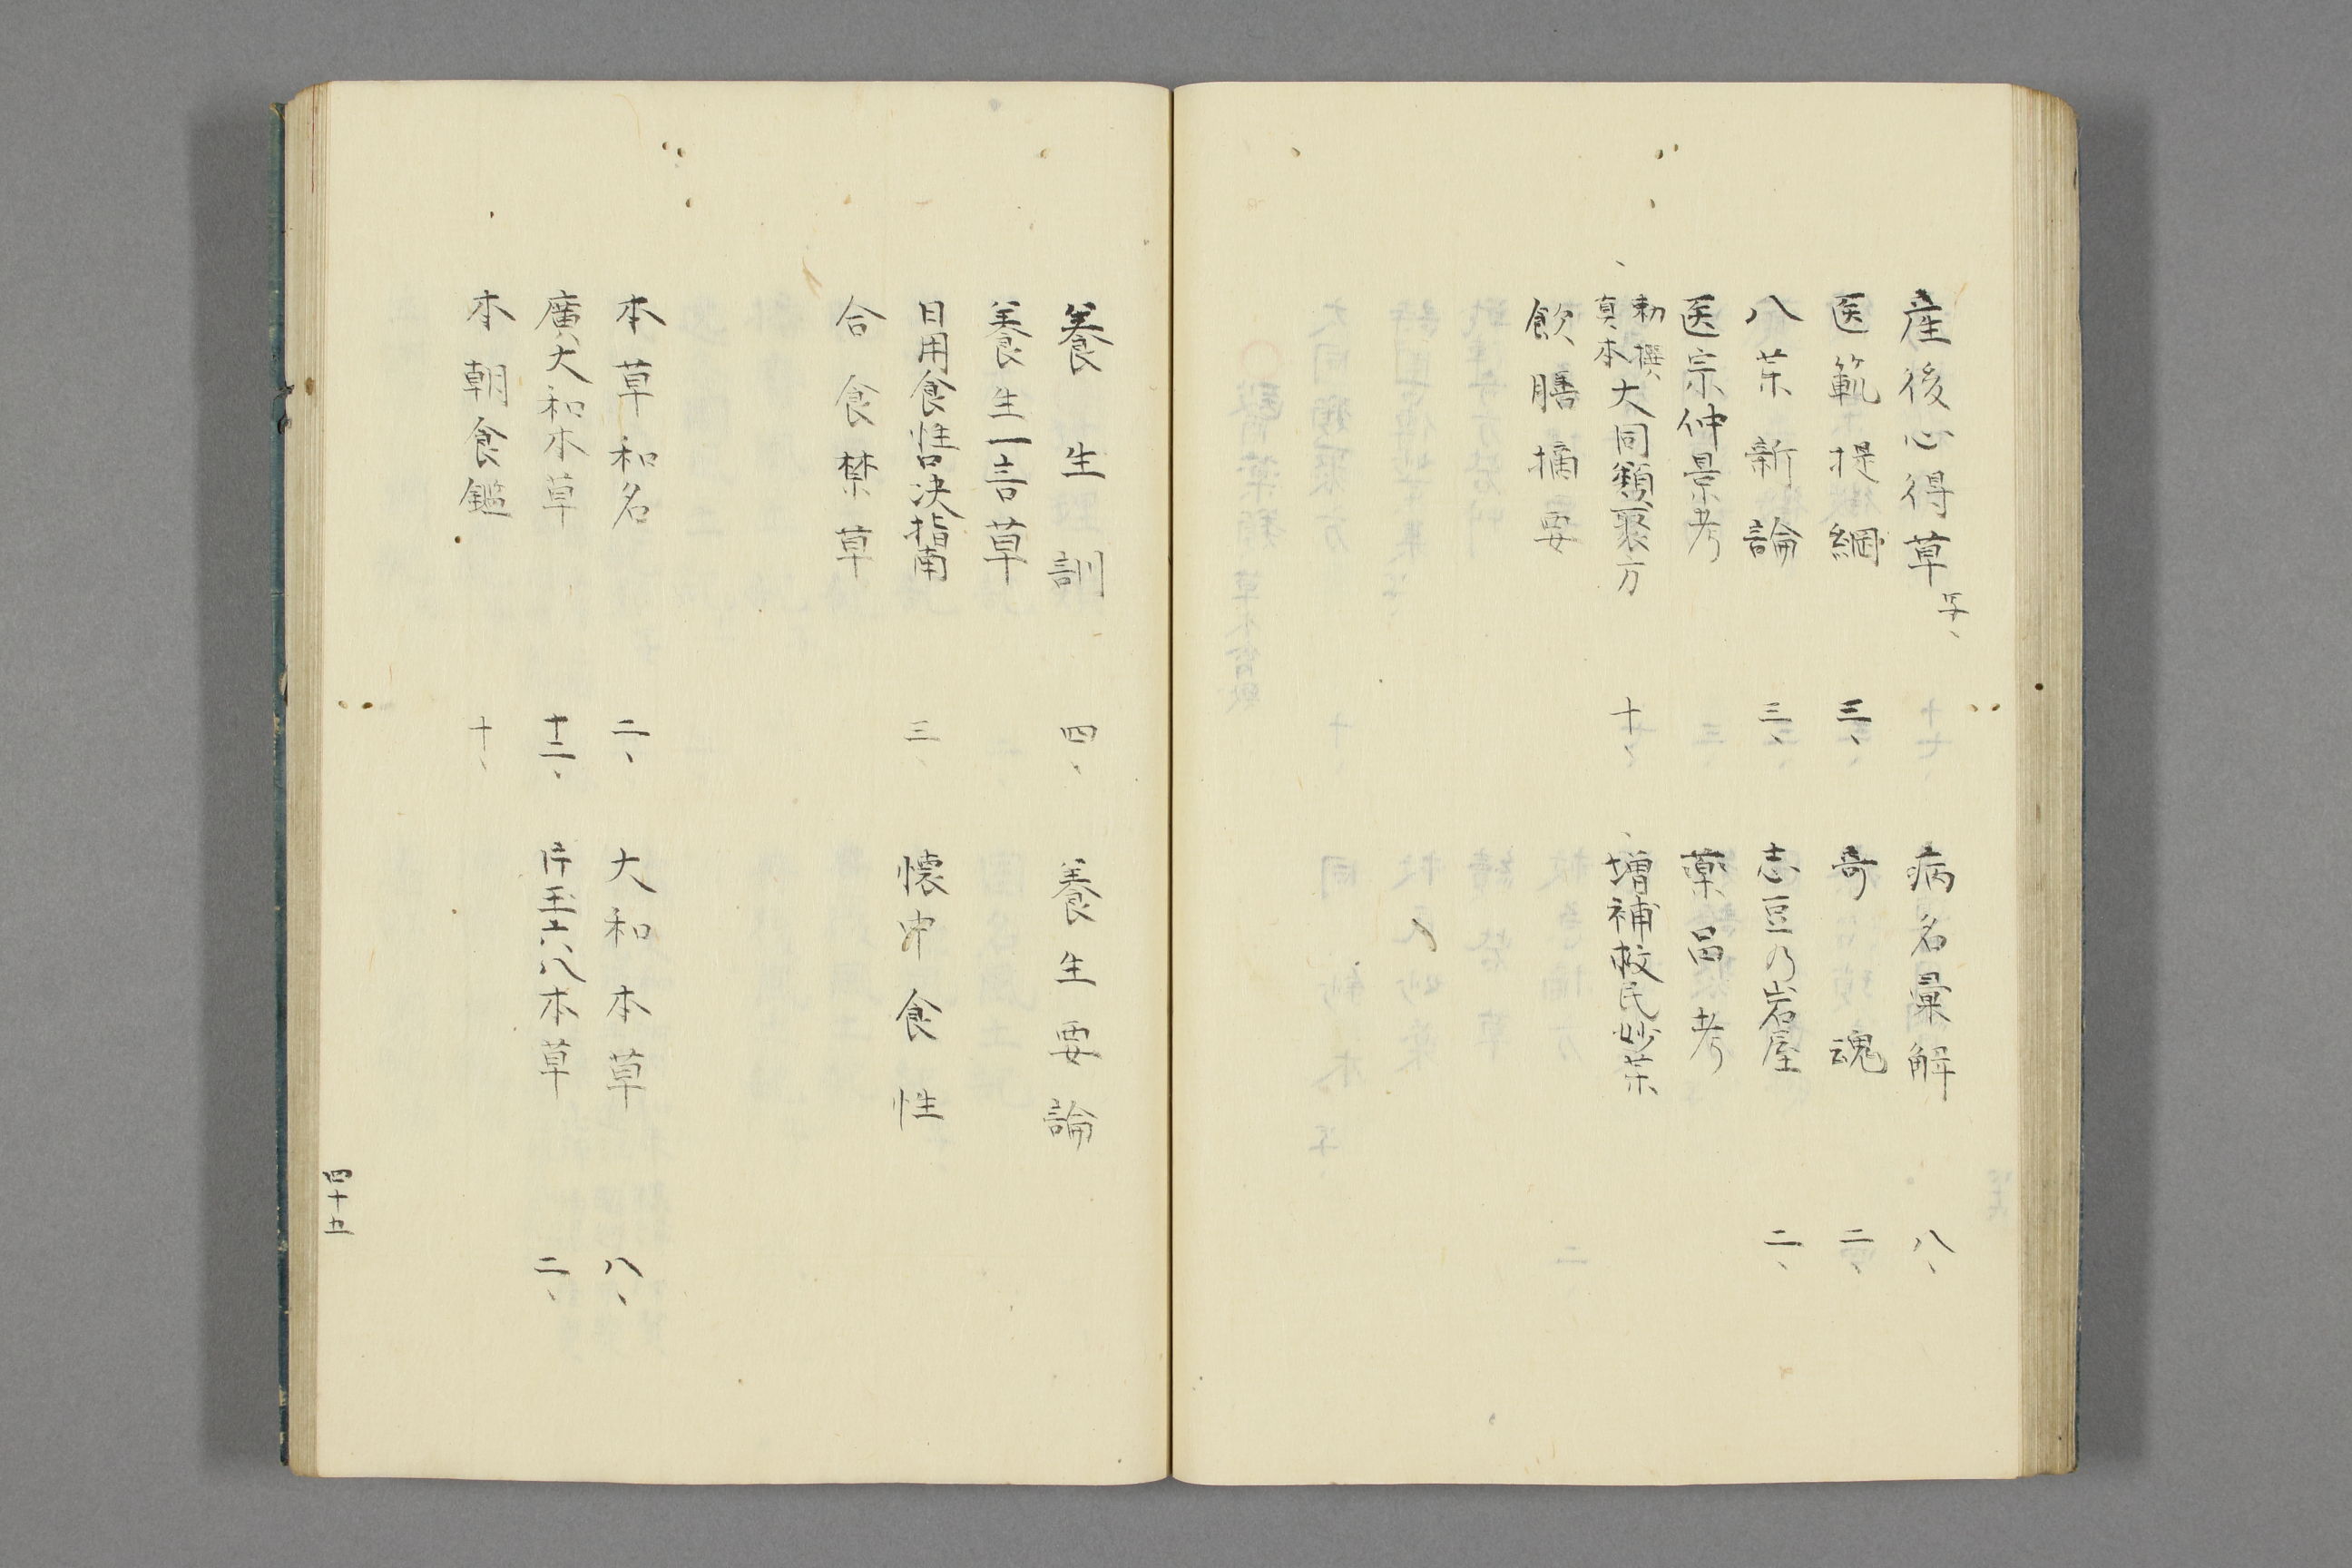 産後心得草 写、
病名彙解 八、
医範提綱 三、
奇魂 二、
八茉新論 三、
志豆乃岩屋 二、
医宗仲景考
薬品考
、勅撰真本大同類聚方 十、
、増補救民妙茉
飲膳摘要
養生訓 四、
養生要論
養生一言草
日用食性口决指南 三、
懐中食性
合食禁草
本草和名 二、
大和本草 八、
廣大和本草 十二、
片玉六八本草 二、
本朝食鑑 十、
四十五